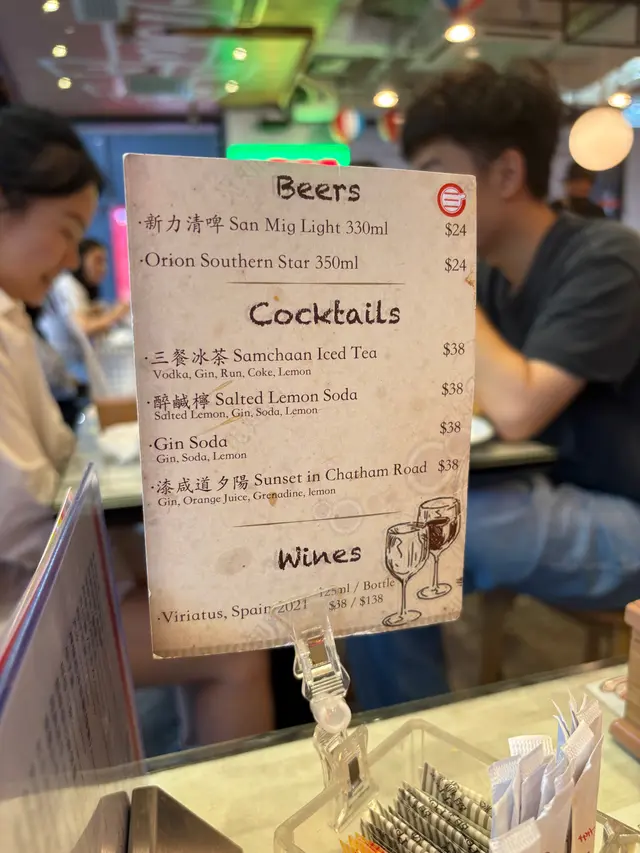 Beers
·新力清啤 San Mig Light 330ml $24
·Orion Southern Star 350ml $24
Cocktails
·三餐冰茶 Samchaan Iced Tea $38
Vodka, Gin, Run, Coke, Lemon
·醉鹹檸 Salted Lemon Soda $38
Salted Lemon, Gin, Soda, Lemon
·Gin Soda $38
Gin, Soda, Lemon
·漆咸道夕陽 Sunset in Chatham Road $38
Gin, Orange Juice, Grenadine, lemon
Wines
125ml / Bottle
·Viriatus, Spain 2021 $38 / $138